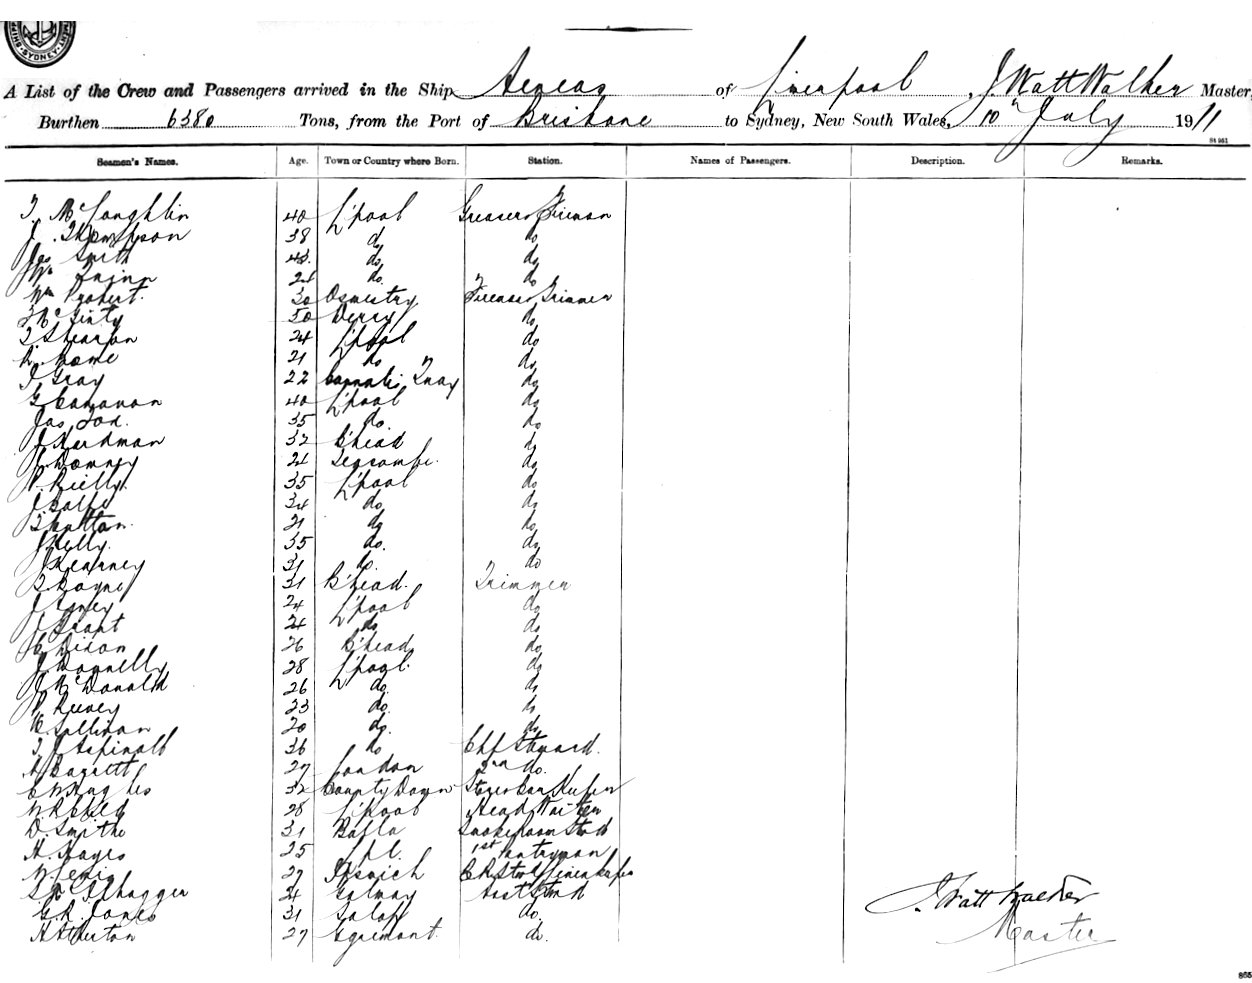 SYDNEY
A List of the Crew and Passengers arrived in the Ship Aeneas of Liverpool, J. Watt Walker Master,
Burthen 6380 Tons, from the Port of Brisbane to Sydney, New South Wales, 10th July 1911
St 951
Seamen's Names. Age. Town or Country where Born. Station. Names of Passengers. Description. Remarks.
T. McLoughlin 40 L'pool Greaser & Fireman
J. Thompson 38 do do
Jas Smith 43 do. do
Wm Quinn 24 do. do
Wm Probert. 30 Oswestry Fireman & Trimmer
McGinty 50 Derry do.
T Shearon 24 L'pool do
Rome 21 do do
J Gray 22 Connahs Quay do
G Canavan 40 L'pool do
Jas Tod. 35 do. do
J Herdman 32 B'head do
J Downey 24 do
P. Rielly. 35 L'pool do
J 34 do. do
T Hutton. 21 do do
J Kelly. 35 do. do
J Kearney 31 do. do
31 B'head. Trimmer
J 24 L'pool do
J Grant 24 do do
H Dixon 26 B'head do
J Donnelly 28 L'pool. do
J McDonald 26 do. do
P 23 do. do
Sullivan 20 do. do
T J Aspinall 36 do Chf Steward.
A Barrett 27 London 2nd do.
C W Hughes 32 County Down Stores Bar Keeper
28 L'pool Head Waiter
D. Smith 31 Smokeroom Std
H. Hayes 25 Lpl. 1st Pantryman
27 Ipswich
24 Galway Asst Std
G. R. Jones 31 Salop do.
H Atherton 27 Egremont. do.
J. Watt Walker
Master
865